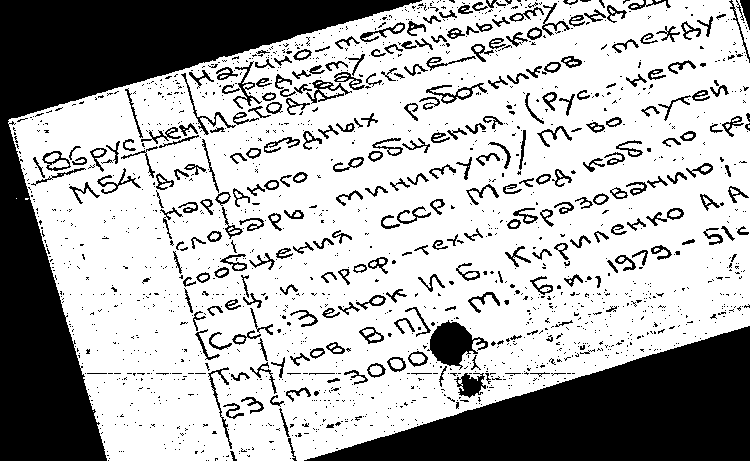 Научно-методический
среднему специальному
Москва.
186 рус-нем Методические рекомендац
М54 для поездных работников между-
народного сообщения: (Рус.-нем.
словарь-минимум) / М-во путей
сообщения СССР. Метод. каб. по сред
спец. и проф.-техн. образованию;
[Сост.: Зенюк И.Б., Кириленко А.А
Тикунов В.П]. - М.: Б.и., 1979. - 51с
23 ст. - 3000